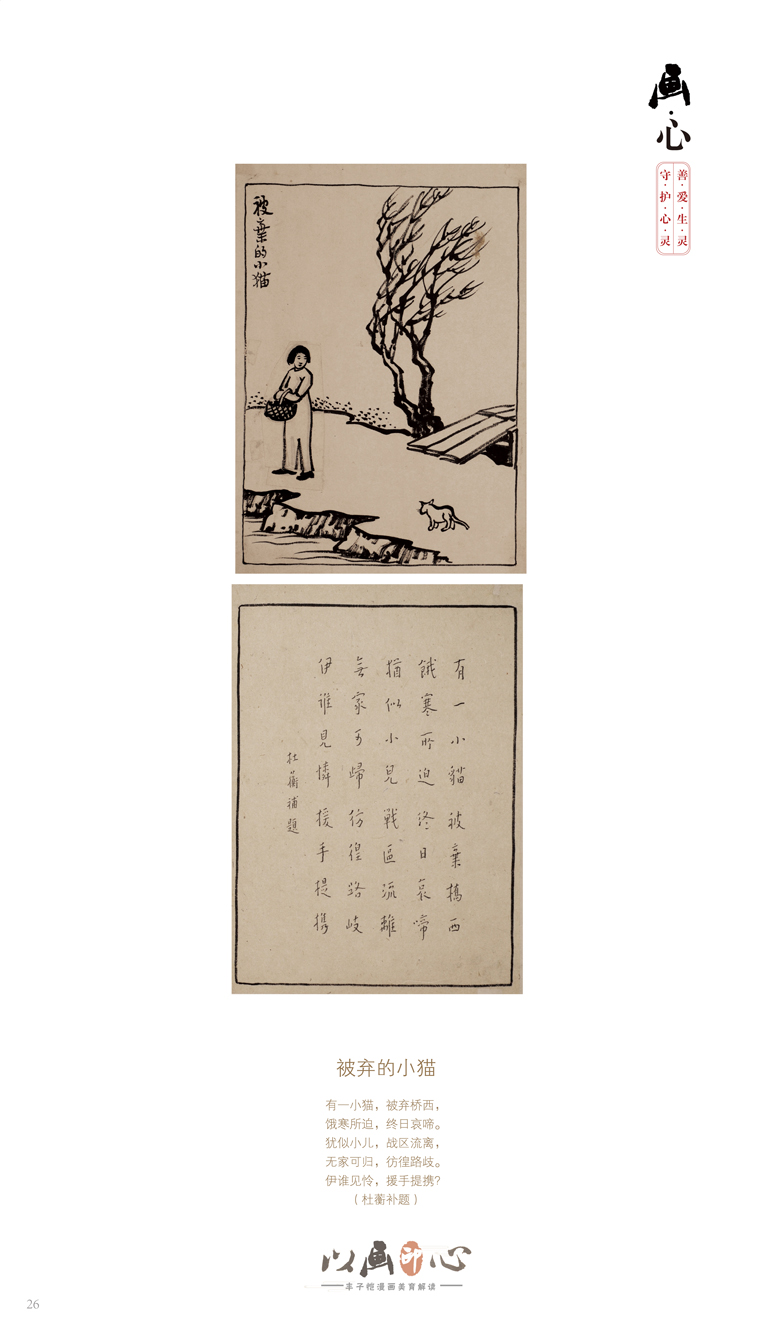 画·心
善·爱·生·灵
守·护·心·灵
被棄的小猫
有一小貓被棄橋西
餓寒所迫終日哀啼
猶似小兒戰區流離
無家可歸彷徨路歧
伊誰見憐援手提携
杜蘅補題
被弃的小猫
有一小猫，被弃桥西，
饿寒所迫，终日哀啼。
犹似小儿，战区流离，
无家可归，彷徨路歧。
伊谁见怜，援手提携？
（杜蘅补题）
以画印心
丰子恺漫画美育解读
26